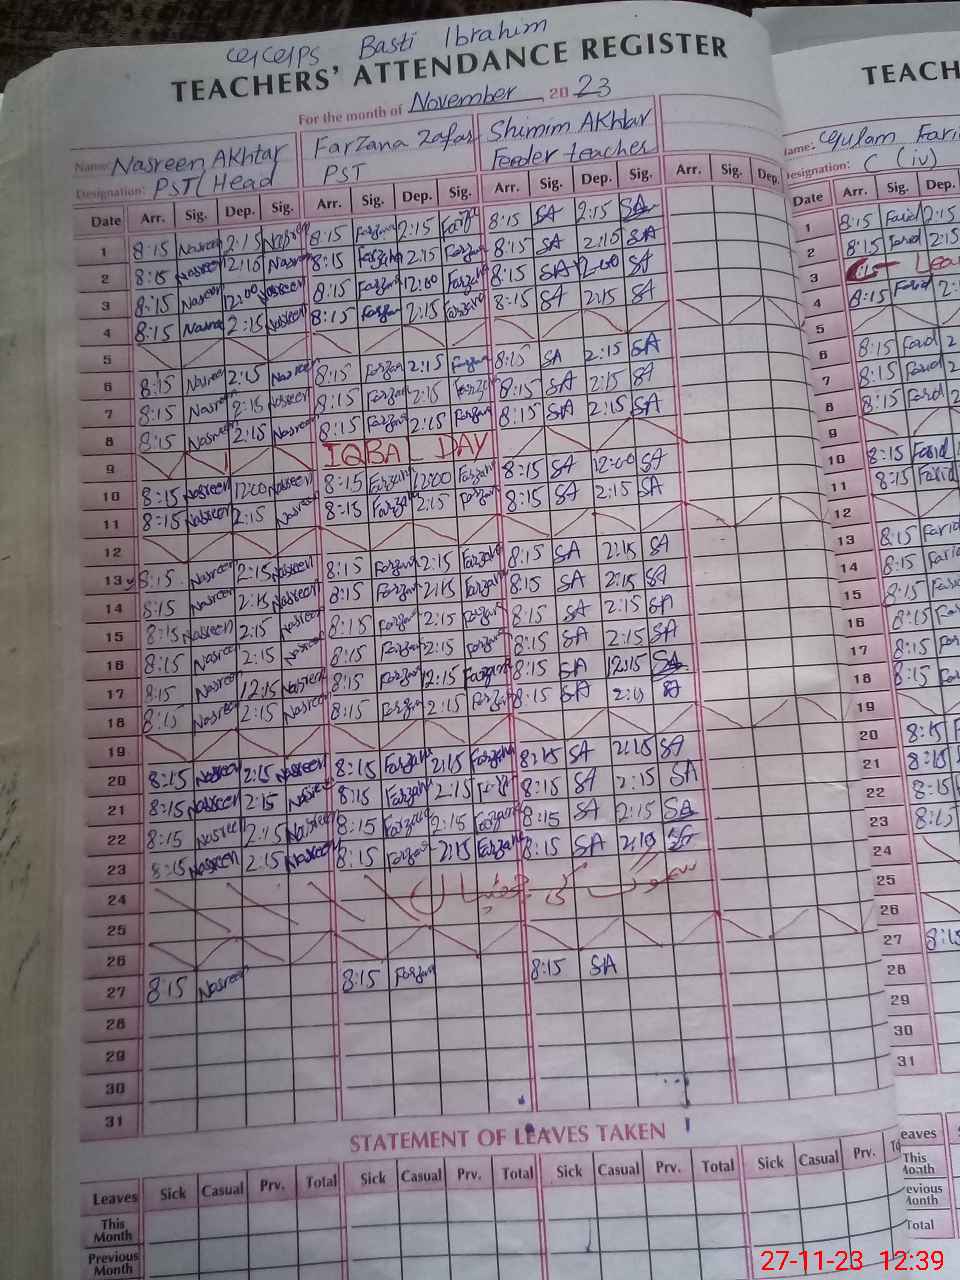 Basti Ibrahim
TEACHERS' ATTENDANCE REGISTER
For the month of November 2023
Name: Nasreen Akhtar Farzana Zafar Shimim Akhtar
Designation: PST/Head PST Feeder teacher
Date Arr. Sig. Dep. Sig. Arr. Sig. Dep. Sig. Arr. Sig. Dep. Sig. Arr. Sig. Dep.
1 8:15 Nasreen 2:15 Nasreen 8:15 Farzana 2:15 8:15 SA 2:15 SA
2 8:15 Nasreen 12:10 Nasreen 8:15 Farzana 2:15 Farzana 8:15 SA 2:15 SA
3 8:15 Nasreen 12:00 Nasreen 8:15 Farzana 12:00 Farzana 8:15 SA 12:00 SA
4 8:15 Nasreen 2:15 Nasreen 8:15 Farzana 2:15 Farzana 8:15 SA 2:15 SA
5
6 8:15 Nasreen 2:15 Nasreen 8:15 Farzana 2:15 Farzana 8:15 SA 2:15 SA
7 8:15 Nasreen 2:15 Nasreen 8:15 Farzana 2:15 Farzana 8:15 SA 2:15 SA
8 8:15 Nasreen 2:15 Nasreen 8:15 Farzana 2:15 Farzana 8:15 SA 2:15 SA
9 IQBAL DAY
10 8:15 Nasreen 12:00 Nasreen 8:15 Farzana 12:00 Farzana 8:15 SA 12:00 SA
11 8:15 Nasreen 2:15 Nasreen 8:15 Farzana 2:15 Farzana 8:15 SA 2:15 SA
12
13 8:15 Nasreen 2:15 Nasreen 8:15 Farzana 2:15 Farzana 8:15 SA 2:15 SA
14 8:15 Nasreen 2:15 Nasreen 8:15 Farzana 2:15 Farzana 8:15 SA 2:15 SA
15 8:15 Nasreen 2:15 Nasreen 8:15 Farzana 2:15 Farzana 8:15 SA 2:15 SA
16 8:15 Nasreen 2:15 Nasreen 8:15 Farzana 2:15 Farzana 8:15 SA 2:15 SA
17 8:15 Nasreen 12:15 Nasreen 8:15 Farzana 12:15 Farzana 8:15 SA 12:15 SA
18 8:15 Nasreen 2:15 Nasreen 8:15 Farzana 2:15 Farzana 8:15 SA 2:15 SA
19
20 8:15 Nasreen 2:15 Nasreen 8:15 Farzana 2:15 Farzana 8:15 SA 2:15 SA
21 8:15 Nasreen 2:15 Nasreen 8:15 Farzana 2:15 8:15 SA 2:15 SA
22 8:15 Nasreen 2:15 Nasreen 8:15 Farzana 2:15 Farzana 8:15 SA 2:15 SA
23 8:15 Nasreen 2:15 Nasreen 8:15 Farzana 2:15 Farzana 8:15 SA 2:15 SA
24
25
26
27 8:15 Nasreen 8:15 Farzana 8:15 SA
28
29
30
31
STATEMENT OF LEAVES TAKEN
Leaves Sick Casual Prv. Total Sick Casual Prv. Total Sick Casual Prv. Total Sick Casual Prv.
This Month
Previous Month
TEACH
Gulam Fari
esignation: C (iv)
Date Arr. Sig. Dep.
1 8:15 Farid 2:15
2 8:15 Farid 2:15
3 Lea
4 8:15 Farid 2:
5
6 8:15 Farid 2
7 8:15 Farid 2
8 8:15 Farid 2
9
10 8:15 Farid
11 8:15 Farid
12
13 8:15 Farid
14 8:15 Farid
15 8:15
16 8:15
17 8:15
18 8:15
19
20 8:15
21 8:15
22 8:15
23 8:15
24
25
26
27 8:15
28
29
30
31
eaves
This
Month
evious
Month
Total
27-11-23 12:39